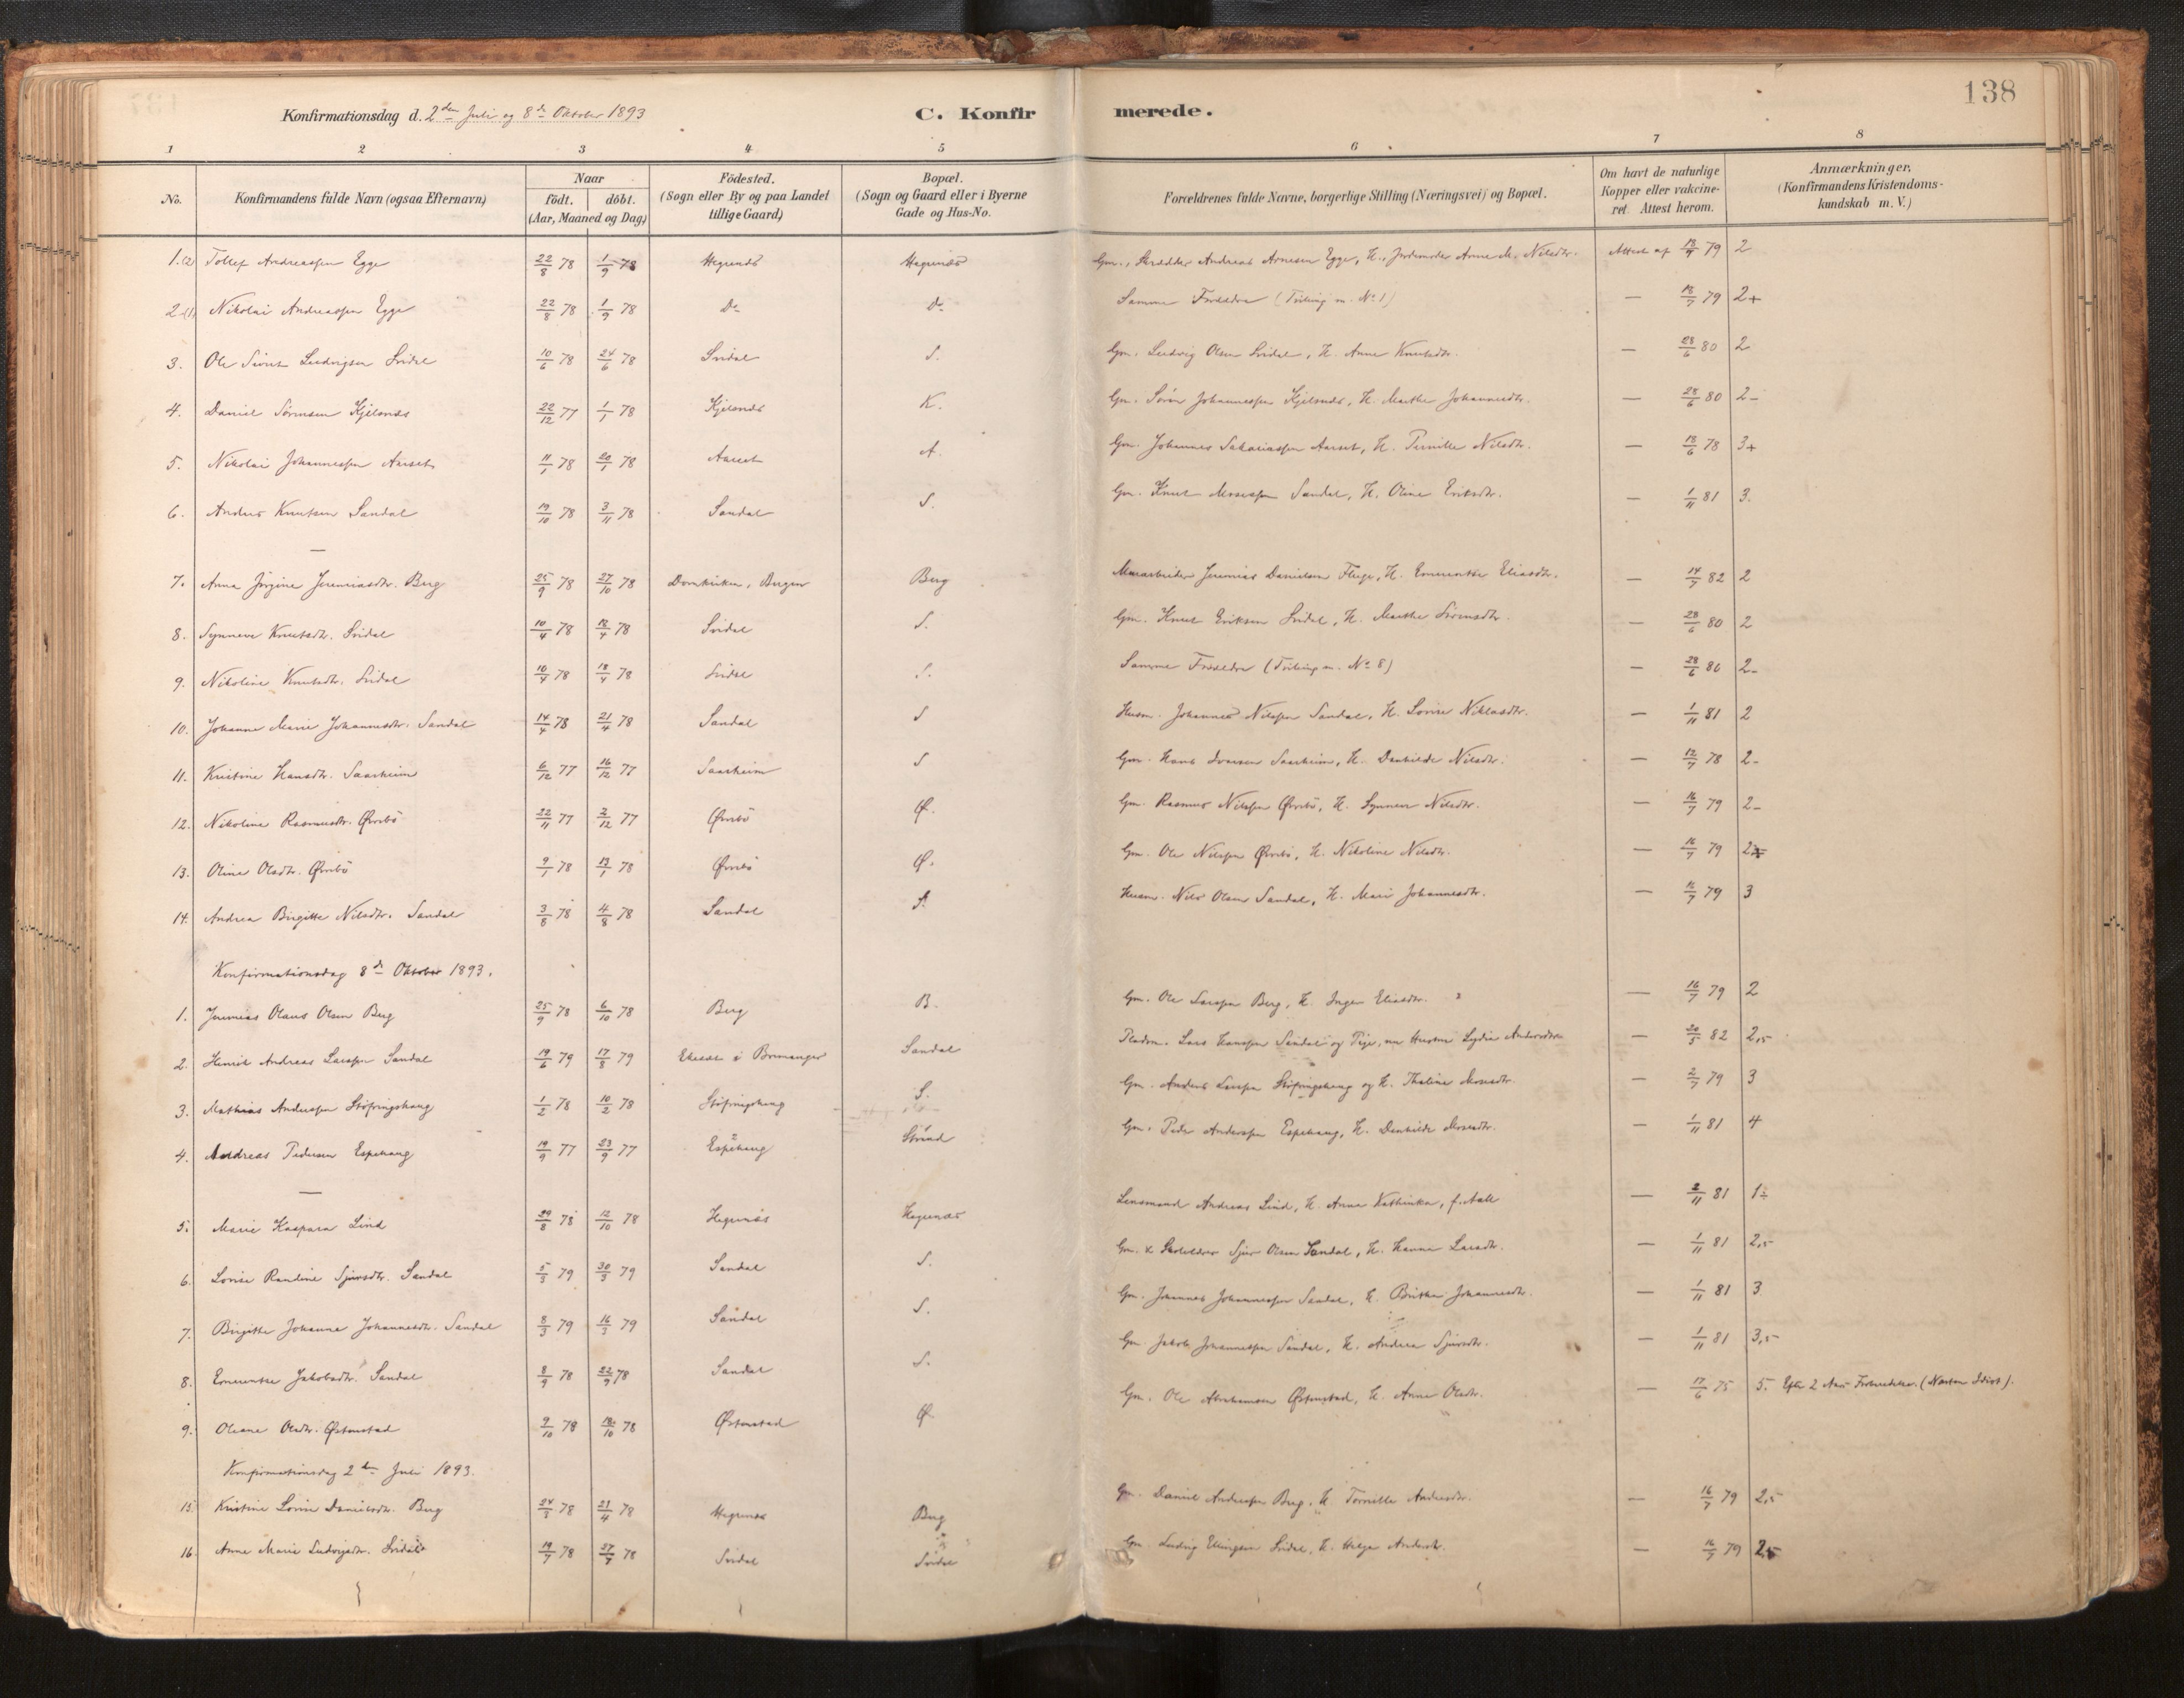 138
Konfirmationsdag d. 2den Juli og 8de Oktober 1893
C. Konfirmerede.
1 2 3 4 5 6 7 8
No. Konfirmandens fulde Navn (ogsaa Efternavn) Naar födt. döbt. (Aar, Maaned og Dag) Födested. (Sogn eller By og paa Landet tillige Gaard) Bopæl. (Sogn og Gaard eller i Byerne Gade og Hus-No. Forældrenes fulde Navne, borgerlige Stilling (Næringsvei) og Bopæl. Om havt de naturlige Kopper eller vakcineret. Attest herom. Anmærkninger. (Konfirmandens Kristendomskundskab m. V.)
1.(2) Tollef Andreassen Egge 22/8 78 1/9 78 Hegrenæs Hegrenæs Gm., Skrædder Andreas Arnesen Egge, H., Jordemoder Anne M. Nilsdtr. Attest af 18/7 79 2
2.(1) Nikolai Andreassen Egge 22/8 78 1/9 78 Do Do Samme Forældre (Tvilling m. No 1) — 18/7 79 2+
3. Ole Sivert Ludvigsen Svidal 10/6 78 24/6 78 Svidal S. Gm. Ludvig Olsen Svidal, H. Anne Knutsdtr. — 28/6 80 2
4. Daniel Sörensen Kjelsnæs 22/12 77 1/1 78 Kjelsnæs K. Gm. Sören Johannessen Kjelsnæs, H. Marthe Johannesdtr. — 28/6 80 2-
5. Nikolai Johannessen Aarset 11/1 78 20/1 78 Aarset A. Gm. Johannes Sakariassen Aarset, H. Pernille Nilsdtr. — 18/6 78 3+
6. Anders Knutsen Sandal 19/10 78 3/11 78 Sandal S. Gm. Knut Mosessen Sandal, H. Oline Eriksdtr. — 1/11 81 3.
—
7. Anna Jörgine Jeremiasdtr. Berg 25/9 78 27/10 78 Domkirken, Bergen Berg Murarbeider Jeremias Danielsen Fluge, H. Emerentse Eliasdtr. — 14/7 82 2
8. Synneve Knutsdtr. Svidal 10/4 78 18/4 78 Svidal S. Gm. Knut Eriksen Svidal, H. Marthe Sörensdtr. — 28/6 80 2
9. Nikoline Knutsdtr. Svidal 10/4 78 18/4 78 Svidal S. Samme Forældre (Tvilling m. No 8) — 28/6 80 2-
10. Johanne Marie Johannesdtr. Sandal 14/4 78 21/4 78 Sandal S Husm. Johannes Nilssen Sandal, H. Lovise Niklasdtr. — 1/11 81 2
11. Kristine Hansdtr. Saarheim 6/12 77 16/12 77 Saarheim S Gm. Hans Ivarsen Saarheim, H. Danhilde Nilsdtr. — 12/7 78 2-
12. Nikoline Rasmusdtr. Ørrebö 22/11 77 2/12 77 Ørrebö Ø. Gm. Rasmus Nilssen Ørrebö, H. Synneve Nilsdtr. — 16/7 79 2-
13. Oline Olsdtr. Ørrebö 9/1 78 13/1 78 Ørrebö Ø. Gm. Ole Nilssen Ørrebö, H. Nikoline Nilsdtr. — 16/7 79 2
14. Andrea Birgitte Nilsdtr. Sandal 3/8 78 4/8 78 Sandal S. Husm. Nils Olsen Sandal, H. Mari Johannesdtr. — 16/7 79 3
Konfirmationsdag 8de Oktober 1893.
1. Jeremias Olaus Olsen Berg 25/9 78 6/10 78 Berg B. Gm. Ole Larssen Berg, H. Inger Eliasdtr. — 16/7 79 2
2. Henrik Andreas Larssen Sandal 19/6 79 17/8 79 i Bremanger Sandal Pladsm. Lars Hanssen Sandal og Pige, nu Hustru Lydia Andersdtr. — 20/5 82 2,5
3. Mathias Anderssen Stöfringshaug 1/2 78 10/2 78 Stöfringshaug S. Gm. Anders Larssen Stöfringshaug og H. Thaline Mosesdtr. — 2/7 79 3
4. Andreas Pedersen Espehaug 19/9 77 23/9 77 Espehaug Strand Gm. Peder Anderssen Espehaug, H. Danhilde Mosesdtr. — 1/11 81 4
—
5. Marie Kaspara Lind 29/8 78 12/10 78 Hegrenæs Hegrenæs Lensmand Andreas Lind, H. Anna Kathinka, f. Aall — 2/11 81 1÷
6. Lovise Randine Sjursdtr. Sandal 5/3 79 30/3 79 Sandal S. Gm. & Skolelærer Sjur Olsen Sandal, H. Hanna Larsdtr. — 1/11 81 2,5
7. Birgitte Johanne Johannesdtr. Sandal 8/3 79 16/3 79 Sandal S. Gm. Johannes Johannessen Sandal, H. Britha Johannesdtr. — 1/11 81 3
8. Emerentse Jakobsdtr. Sandal 8/9 78 22/9 78 Sandal S. Gm. Jakob Johannessen Sandal, H. Andrea Sjursdtr. — 1/11 81 3,5
9. Oleane Olsdtr. Østenstad 9/10 78 18/10 78 Østenstad Ø. Gm. Ole Abrahamsen Østenstad, H. Anne Olsdtr. — 17/6 75 5. Efter 2 Aars Forberedelse. (Næsten Idiot).
Konfirmationsdag 2den Juli 1893.
15. Kristine Lovise Danielsdtr. Berg 24/3 78 21/4 78 Hegrenæs Berg Gm. Daniel Andersen Berg, H. Andersdtr. — 16/7 79 2,5
16. Anne Marie Ludvigsdtr. Svidal 19/7 78 27/7 78 Svidal Svidal Gm. Ludvig Ellingsen Svidal, H. Helge Andersdtr. — 16/7 79 2,5